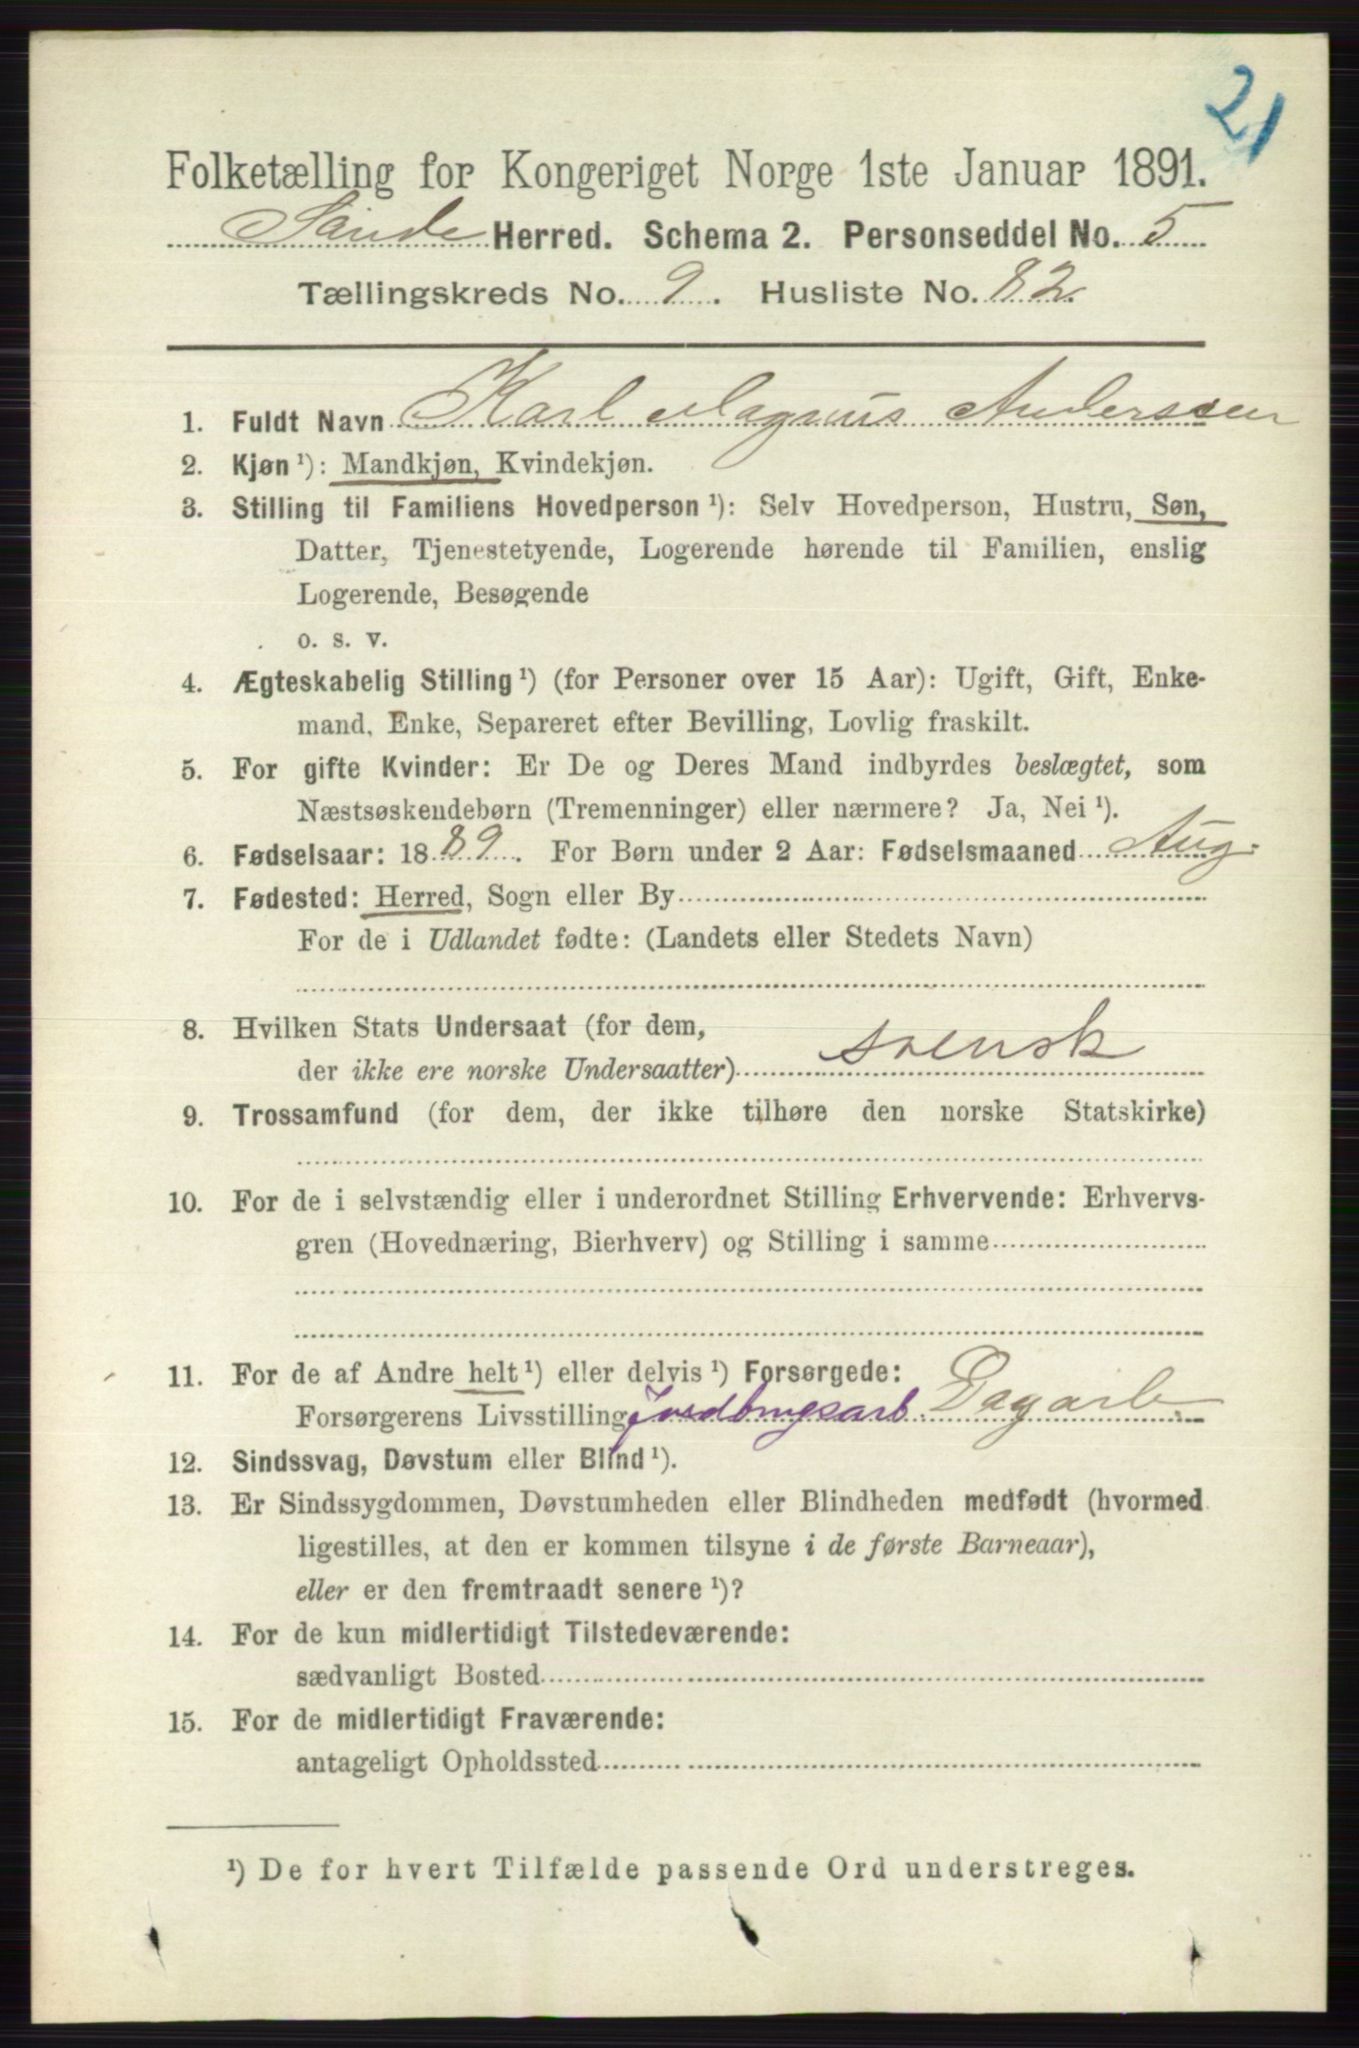 21
Folketælling for Kongeriget Norge 1ste Januar 1891.
Sande Herred. Schema 2. Personseddel No. 5
Tællingskreds No. 9. Husliste No. 82.
1. Fuldt Navn Karl Magnus Anderssen
2. Kjøn ¹): Mandkjøn, Kvindekjøn.
3. Stilling til Familiens Hovedperson ¹): Selv Hovedperson, Hustru, Søn,
Datter, Tjenestetyende, Logerende hørende til Familien, enslig
Logerende, Besøgende
o. s. v.
4. Ægteskabelig Stilling ¹) (for Personer over 15 Aar): Ugift, Gift, Enke-
mand, Enke, Separeret efter Bevilling, Lovlig fraskilt.
5. For gifte Kvinder: Er De og Deres Mand indbyrdes beslægtet, som
Næstsøskendebørn (Tremenninger) eller nærmere? Ja, Nei ¹).
6. Fødselsaar: 1889. For Børn under 2 Aar: Fødselsmaaned Aug.
7. Fødested: Herred, Sogn eller By
For de i Udlandet fødte: (Landets eller Stedets Navn)
8. Hvilken Stats Undersaat (for dem,
der ikke ere norske Undersaatter) svensk
9. Trossamfund (for dem, der ikke tilhøre den norske Statskirke)
10. For de i selvstændig eller i underordnet Stilling Erhvervende: Erhvervs-
gren (Hovednæring, Bierhverv) og Stilling i samme
11. For de af Andre helt ¹) eller delvis ¹) Forsørgede:
Forsørgerens Livsstilling Jordbrugsarb. Dagarb.
12. Sindssvag, Døvstum eller Blind ¹).
13. Er Sindssygdommen, Døvstumheden eller Blindheden medfødt (hvormed
ligestilles, at den er kommen tilsyne i de første Barneaar),
eller er den fremtraadt senere ¹)?
14. For de kun midlertidigt Tilstedeværende:
sædvanligt Bosted
15. For de midlertidigt Fraværende:
antageligt Opholdssted
¹) De for hvert Tilfælde passende Ord understreges.